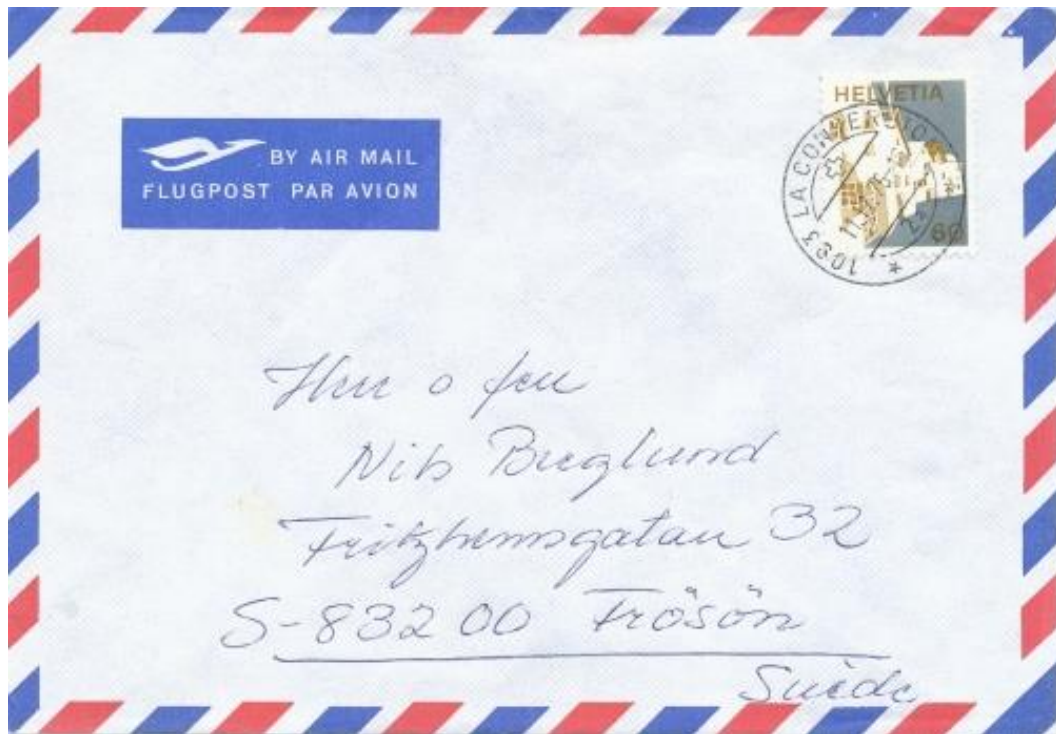 BY AIR MAIL
FLUGPOST PAR AVION
HELVETIA
60
1093 LA CONVERSION
Herr o fru
Nils Berglund
Fritzhemsgatan 32
S-832 00 Frösön
Suède